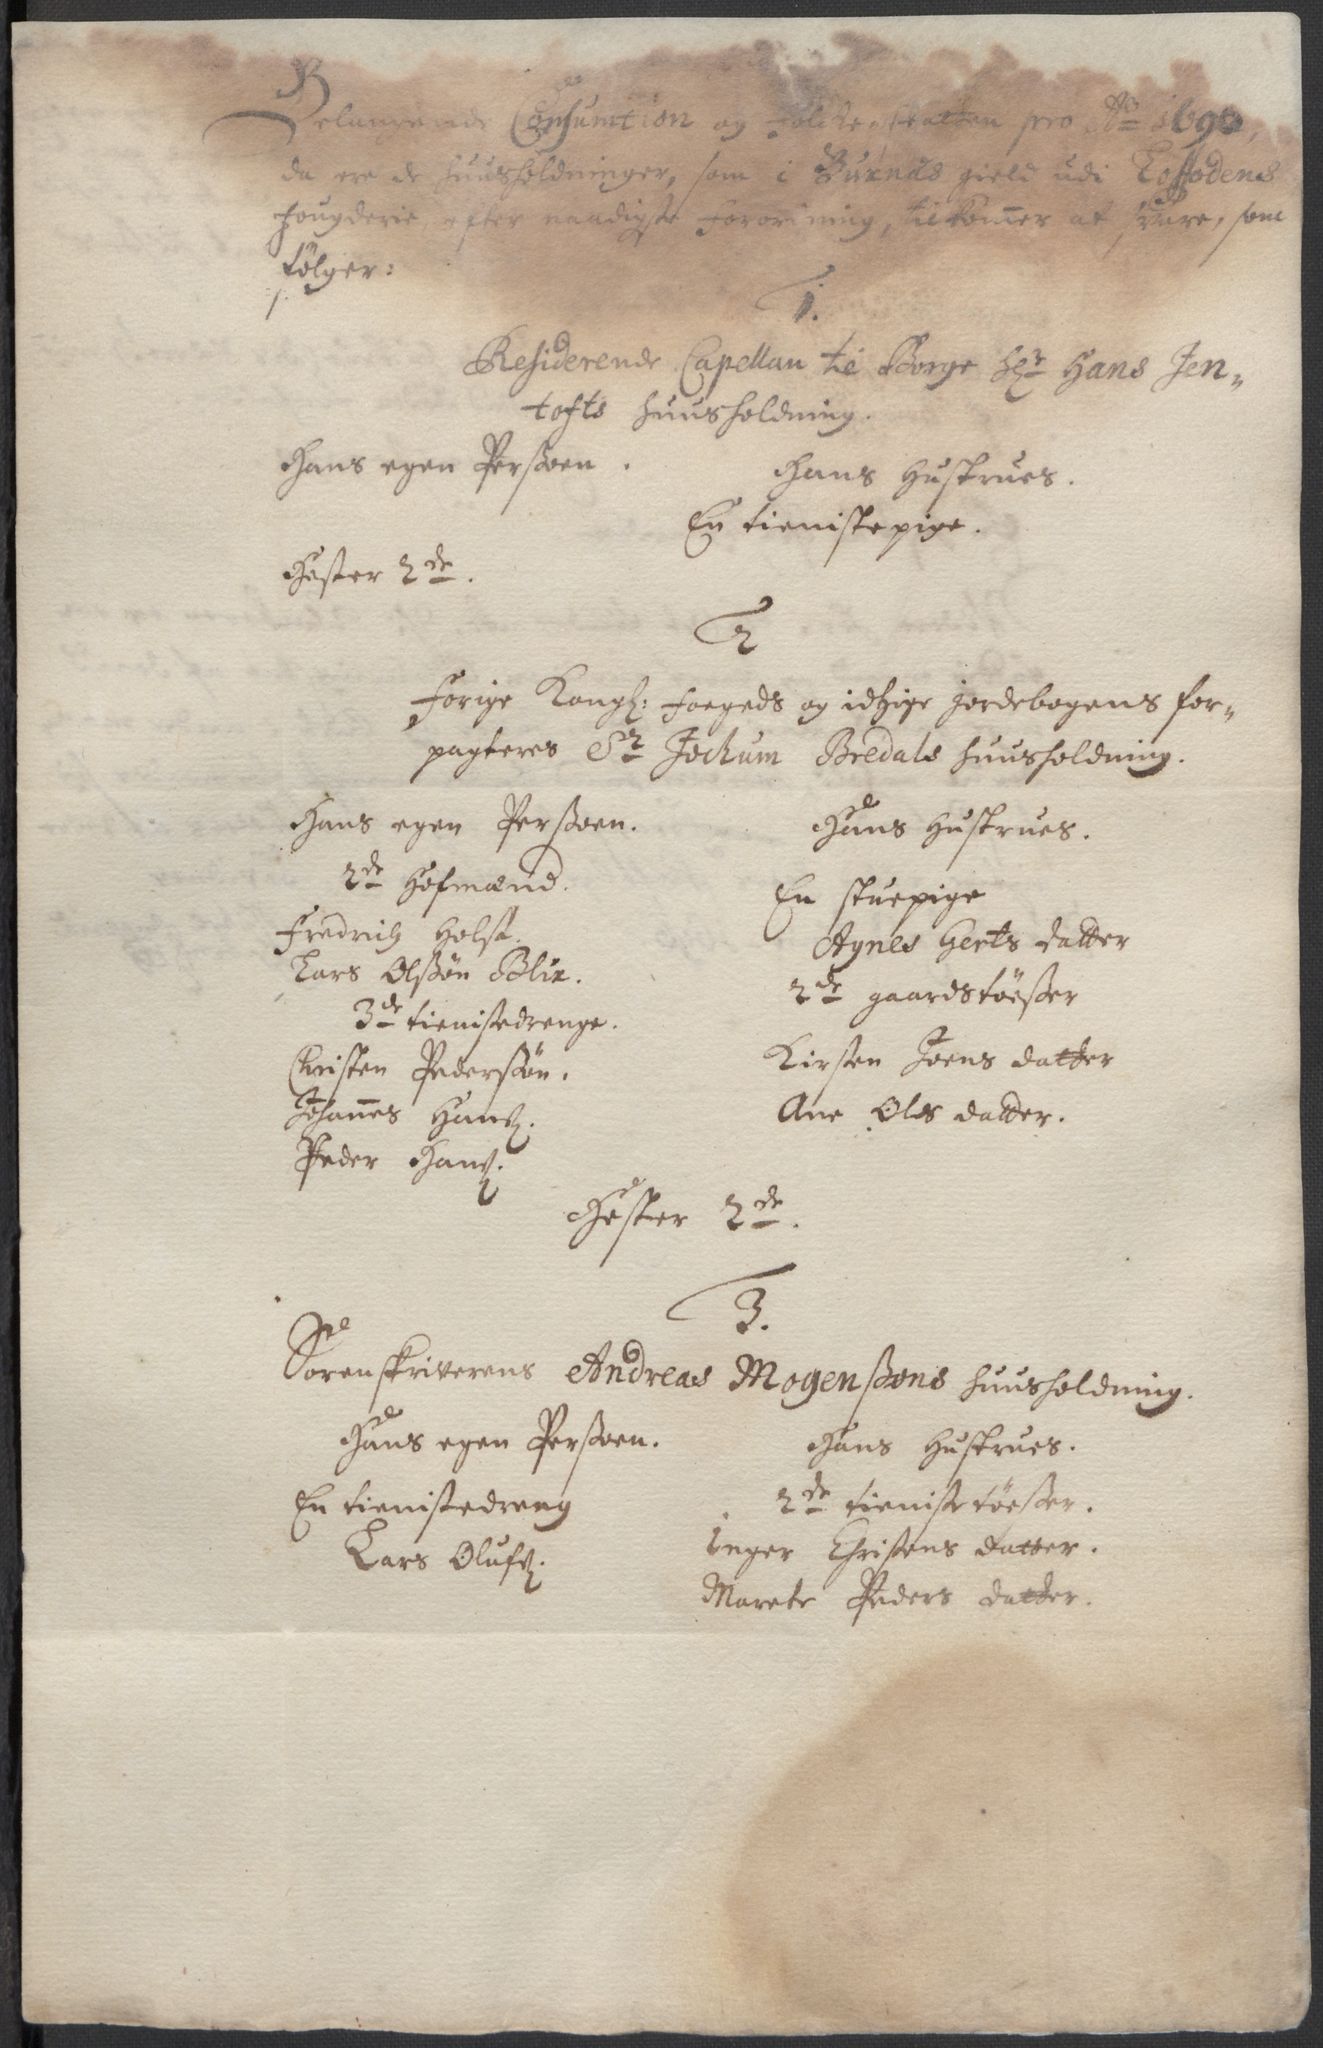 Belangende Consumtion og folcke skatten pro Ao 1690,
da ere de huusholdninger, som i Buxnæs gield udi Loffodens
fougderie efter naadigste forordning, tilkommer at svare, som
følger:
1.
Residerende Capellan til Borge Hr Hans Jen-
tofts huusholdning.
Hans egen Persoen. Hans Hustrues.
En tienistepige.
Hester 2de.
2
Forige Kongl: foegeds og idzige jordebogens for-
pagteres Sr Jochum Bredals huusholdning.
Hans egen Persoen. Hans Hustrues.
2de Hofmænd. En stuepige
Fredrich Holst. Agnes Gerts datter
Lars Olssøn Blix. 2de gaardstøesser
3de tienistedrenge. Kirsten Joens datter
Christen Pederssøn. Ane Olds datter.
Johannes Hans.
Peder Hans.
Hester 2de.
3.
Sorenskriverens Andreas Mogenssøns huusholdning.
Hans egen Persoen. Hans Hustrues.
En tienistedreng 2de tienistetøesser.
Lars Olufs. Inger Christens datter.
Marete Peders datter.